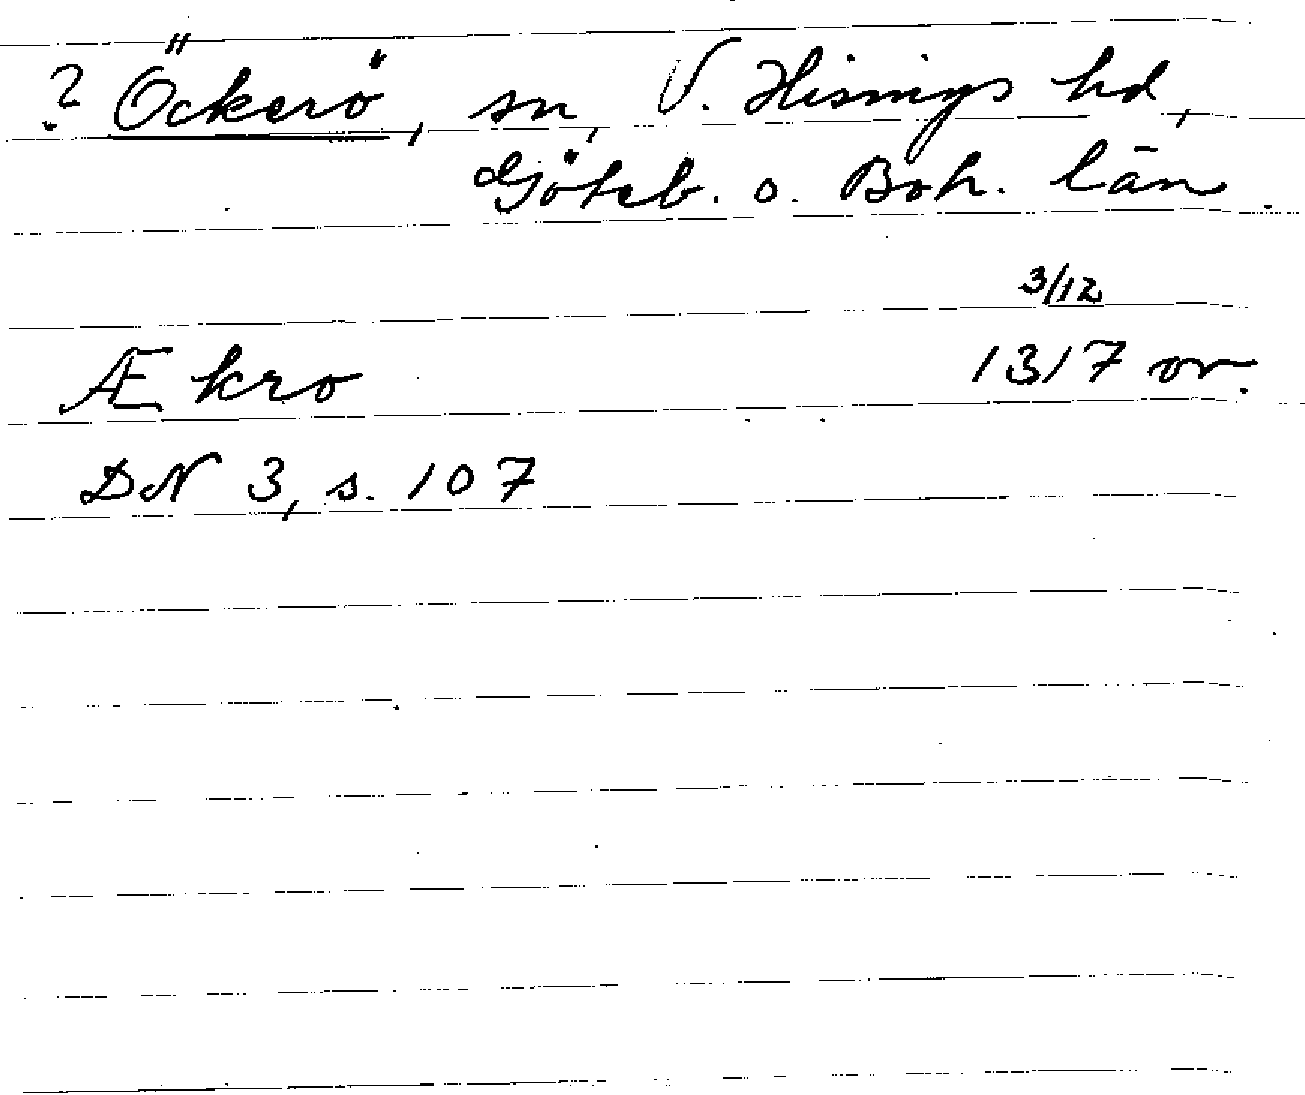 ? Öckerö, sn, V. Hisings hd,
Göteb. o. Boh. län.
3/12
Ækro 1317 or.
DN 3, s. 107